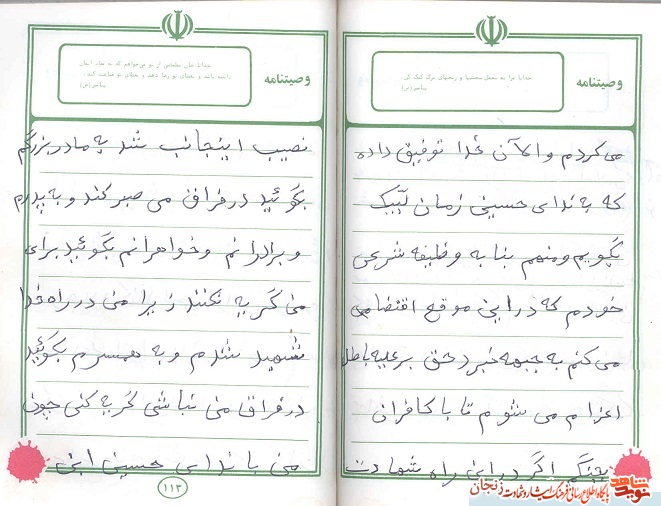 وصیتنامه
خدایا مرا به تحمل سختیها و رنجهای مرگ کمک کن.
پیامبر (ص)
می کردم و الآن خدا توفیق داده
که به ندای حسینی زمان لبیک
بگویم و منهم بنا به وظیفه شرعی
خودم که در این موقع اقتضا می
می کنم به جبهه نبرد حق بر علیه باطل
اعزام می شوم تا با کافران
بجنگم اگر در این راه شهادت
وصیتنامه
خدایا جان مطمئنی از تو میخواهم که به لقاء ایمان
داشته باشد و بقضای تو رضا دهد و بعطای تو قناعت کند.
پیامبر (ص)
نصیب اینجانب شد به مادربزرگم
بگوئید در فراق من صبر کند و به پدرم
و برادرانم و خواهرانم بگوئید برای
من گریه نکنند زیرا من در راه خدا
شهید شدم و به همسرم بگوئید
در فراق من نباشی گریه کنی چون
من با ندای حسین ابن
۱۱۳
نوید شاهد
پایگاه اطلاع رسانی فرهنگ ایثار و شهادت زنجان